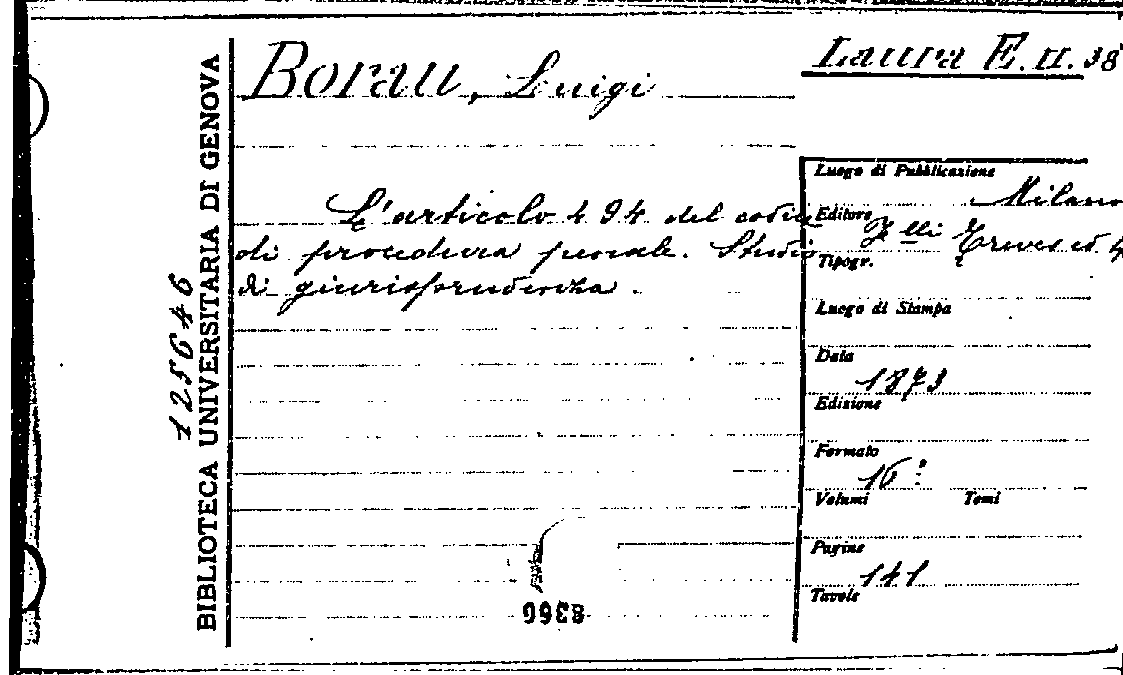 Borau, Luigi
Laura E. II. 38
BIBLIOTECA UNIVERSITARIA DI GENOVA
125646
L'articolo 494 del codice
di procedura penale. Studio
di giurisprudenza.
Luogo di Pubblicazione
Milano
Editore
F.lli Treves ed.
Tipogr.
Luogo di Stampa
Data
1873
Edizione
Formato
16°
Volumi Tomi
Pagine
141
Tavole
8366